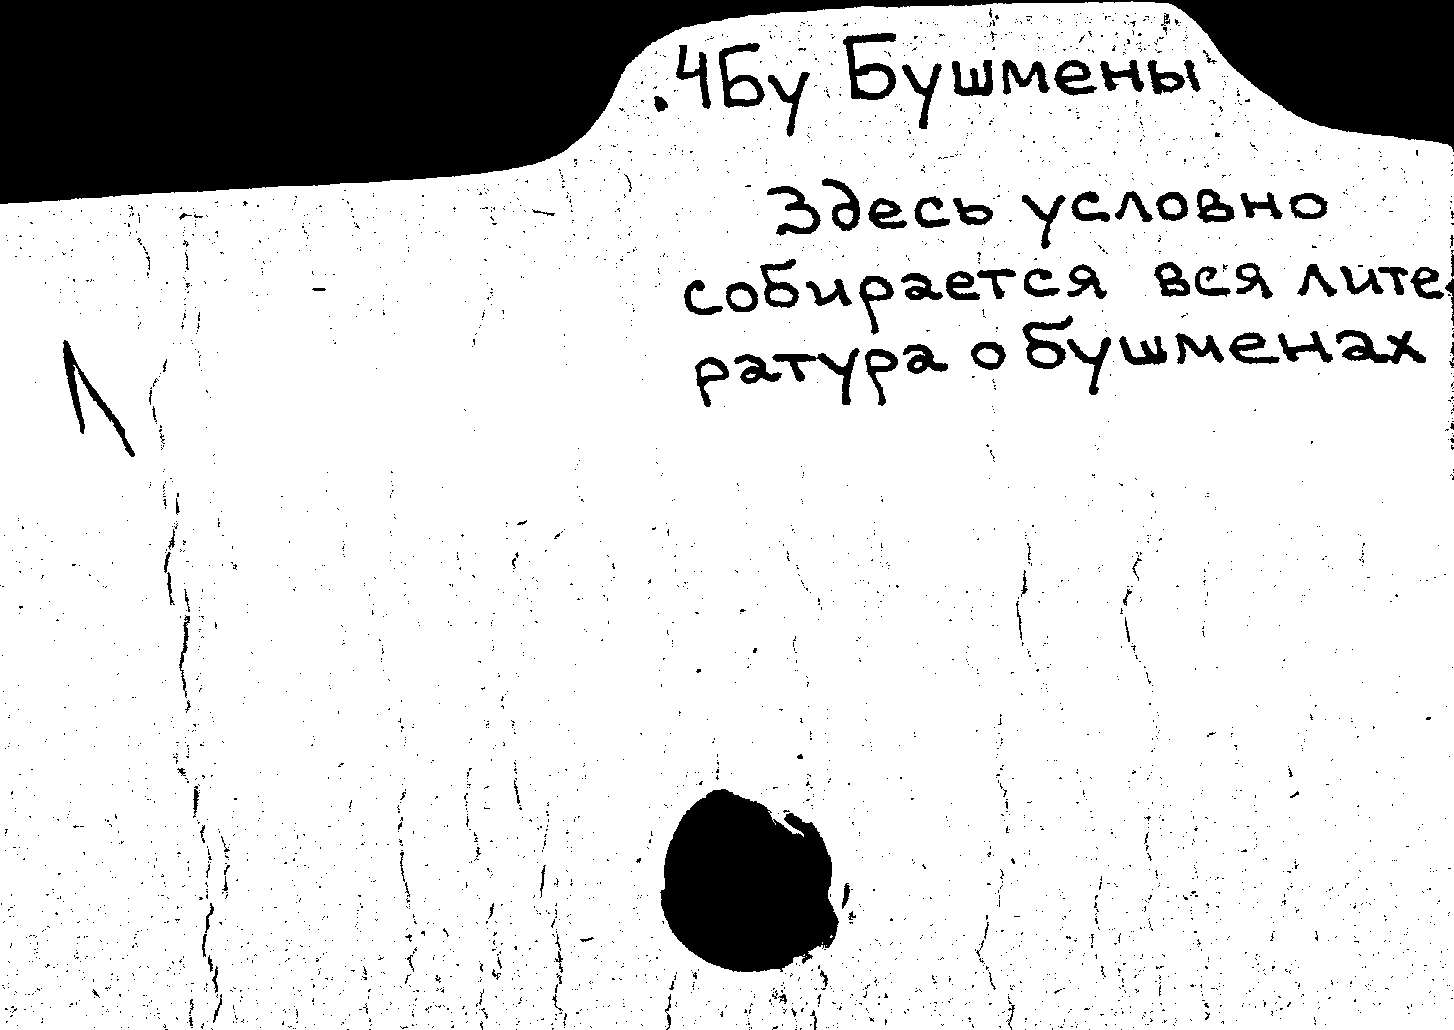 .4Бу Бушмены
Здесь условно
собирается вся лите-
ратура о бушменах